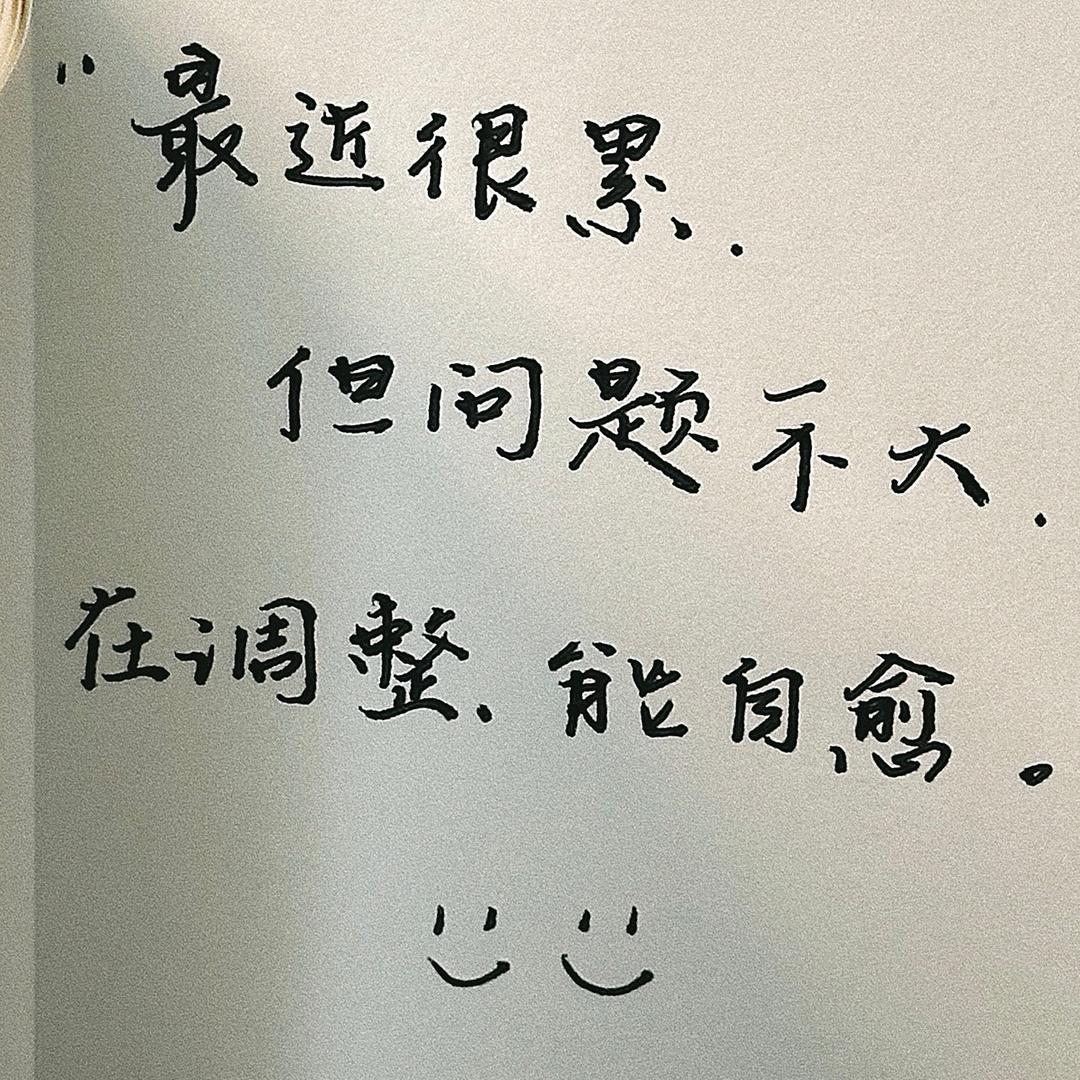 "最近很累..
但问题不大.
在调整.能自愈。